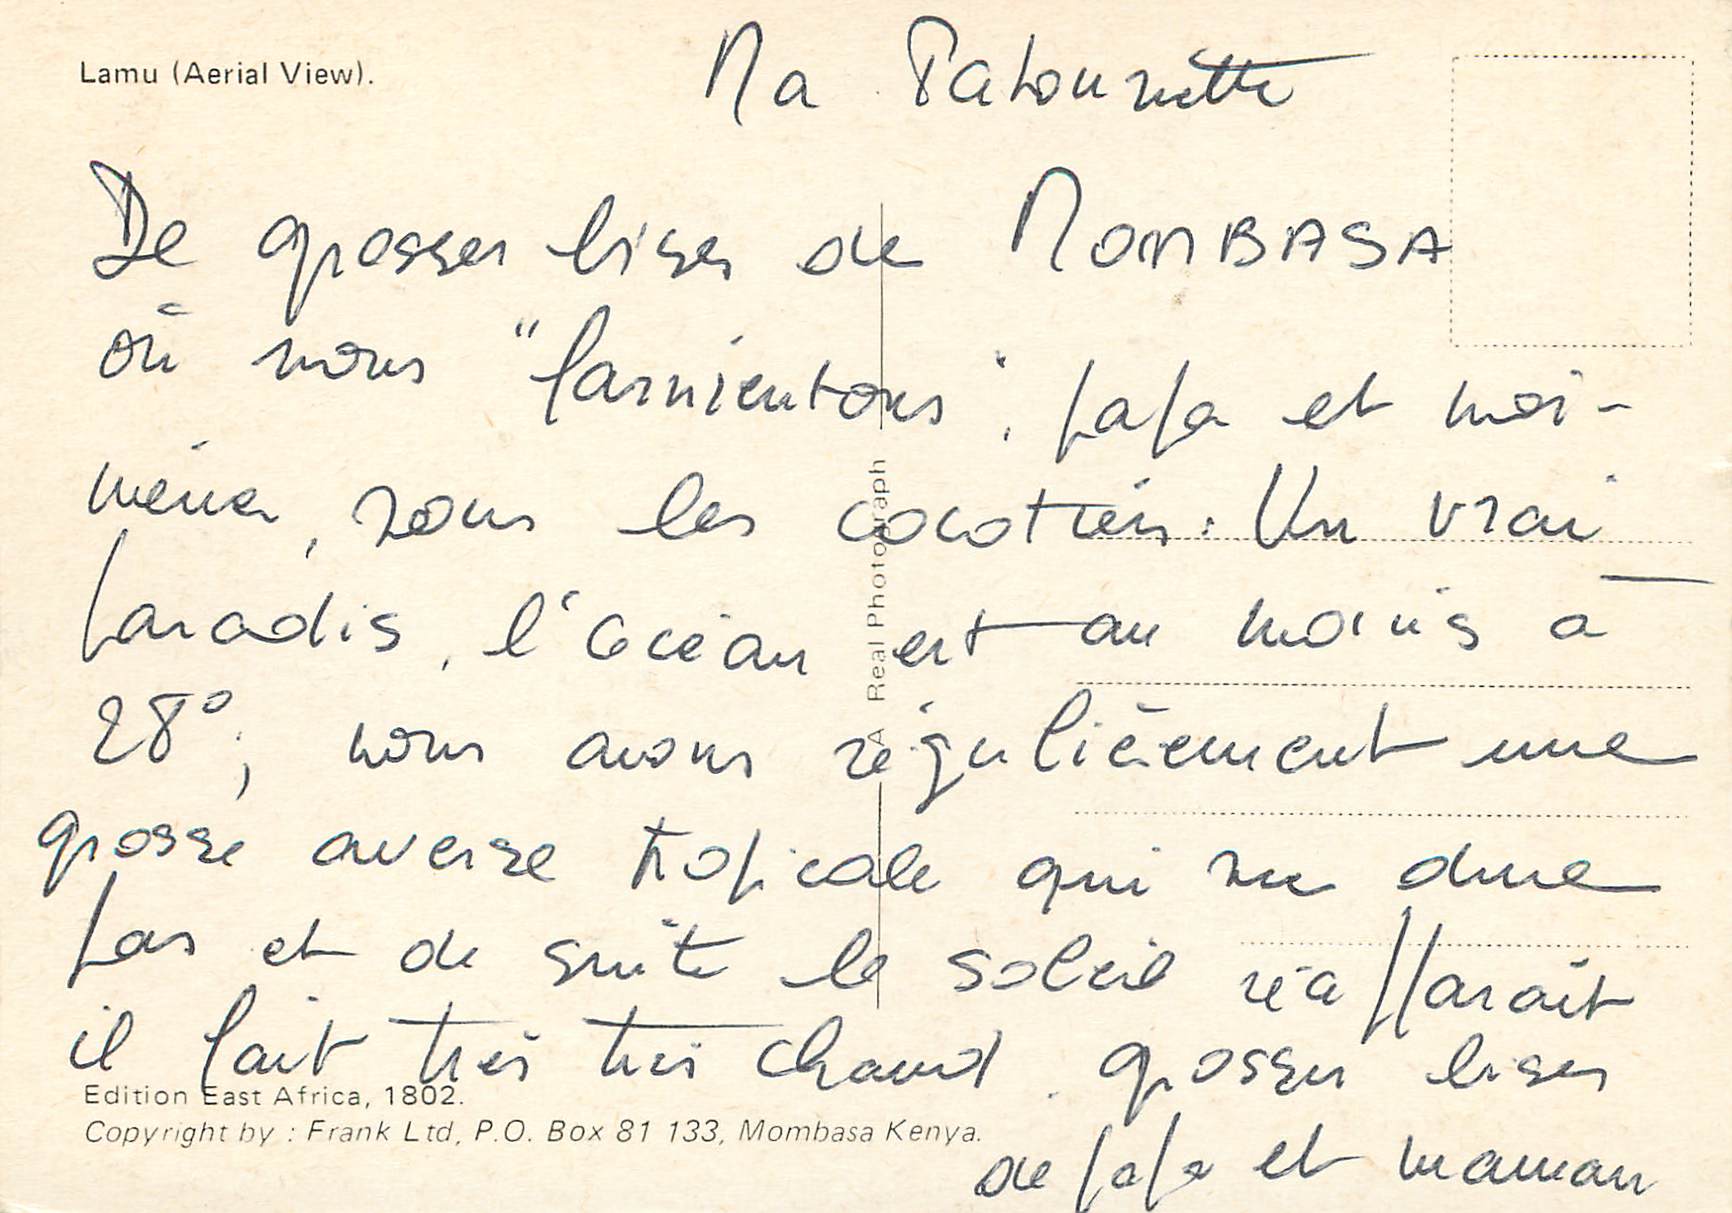 Lamu (Aerial View).
Ma Patounette
De grosses bises de MOMBASA
où nous "farnientons", papa et moi-
même, sous les cocotiers. Un vrai
paradis, l'océan est au moins à
28°; nous avons régulièrement une
grosse averse tropicale qui ne dure
pas et de suite le soleil réapparait
il fait très très chaud. grosses bises
de papa et maman
A Real Photograph
Edition East Africa, 1802.
Copyright by : Frank Ltd, P.O. Box 81 133, Mombasa Kenya.